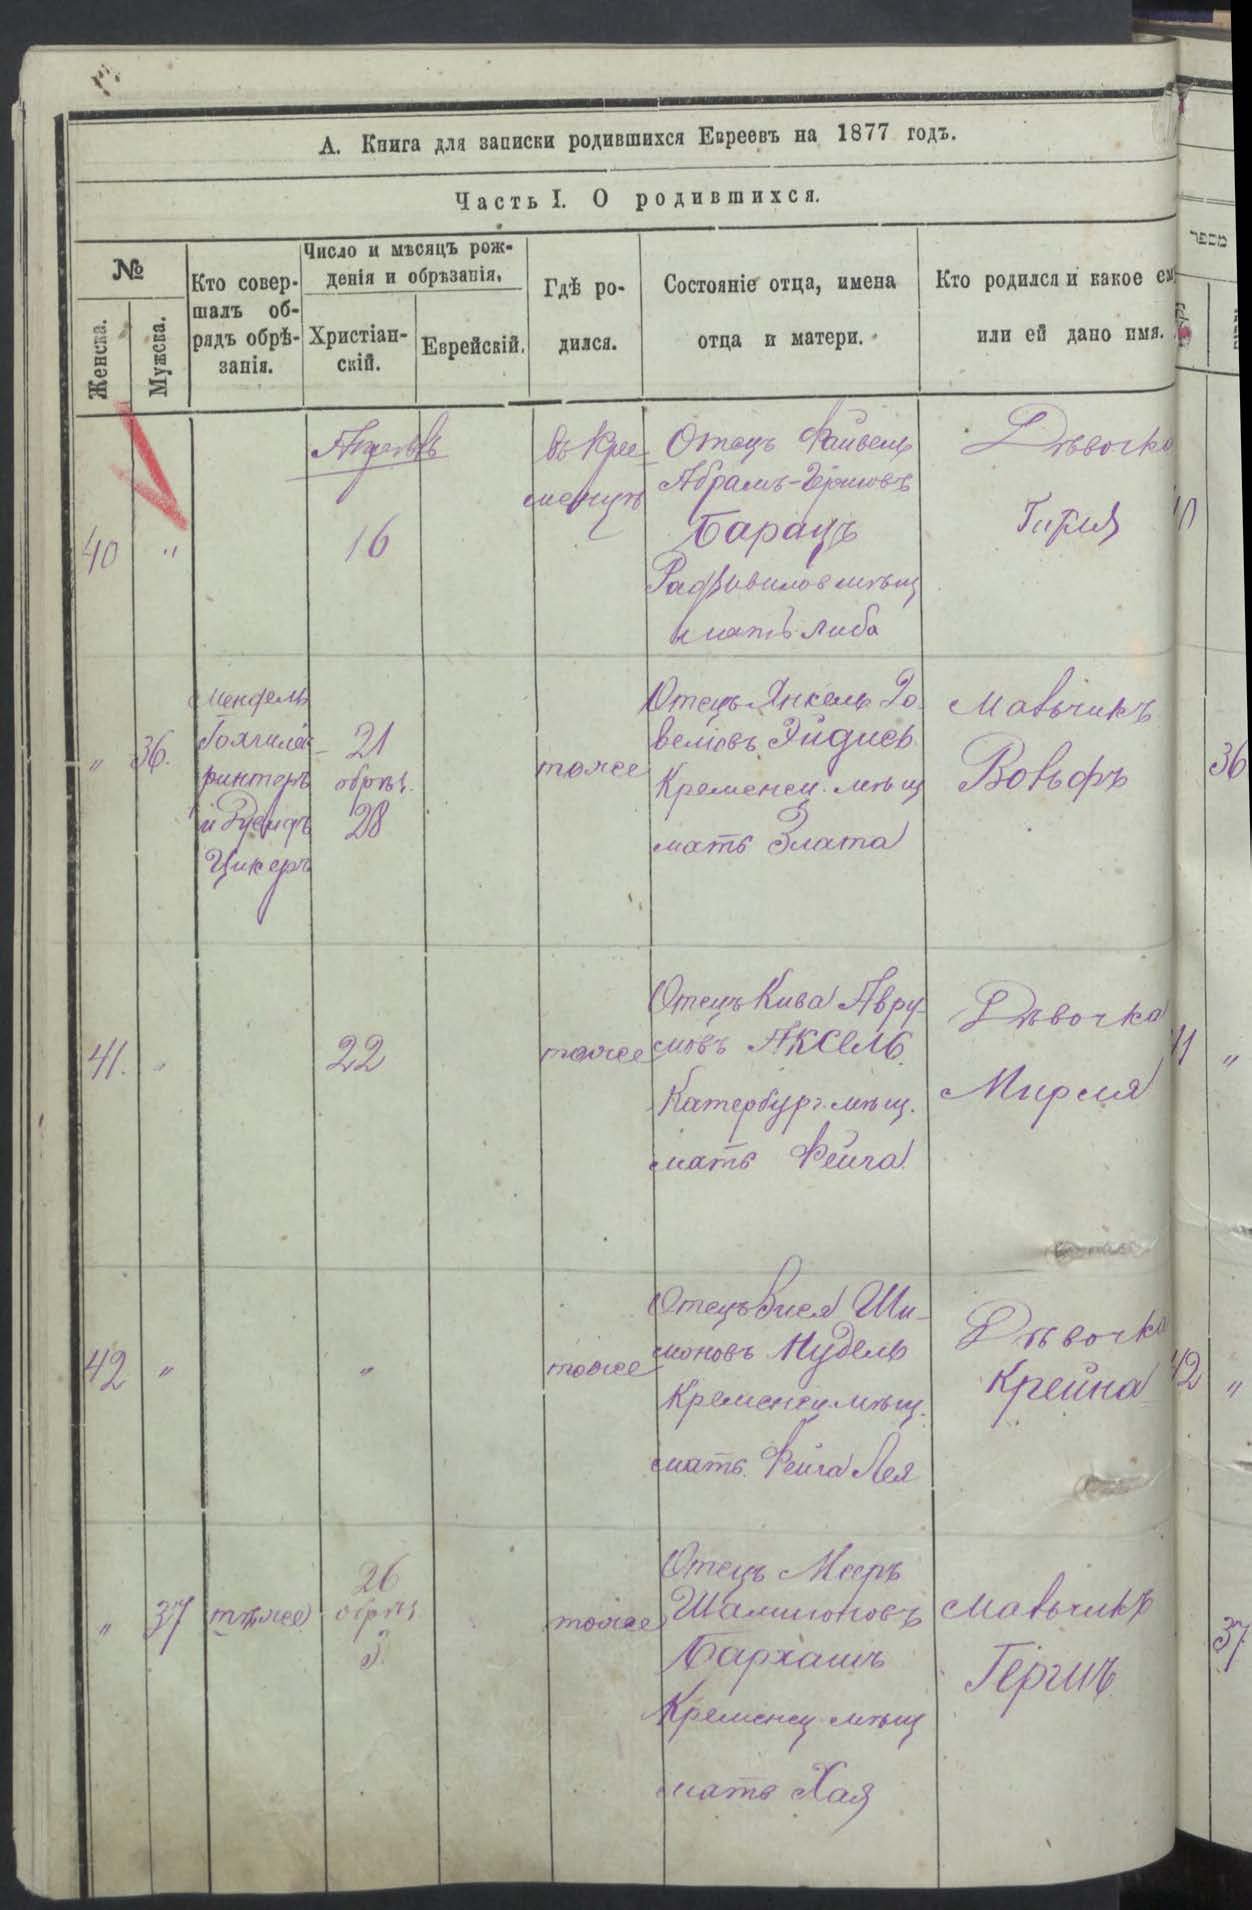 А. Книга для записки родившихся Евреевъ на 1877 годъ.
Часть I. О родившихся.
№
Женска.
Мужска.
Кто совер-
шалъ об-
рядъ обрѣ-
занія.
Число и мѣсяцъ рож-
денія и обрѣзанія.
Христіан-
скій.
Еврейскій.
Гдѣ ро-
дился.
Состояніе отца, имена
отца и матери.
Кто родился и какое ем
или ей дано имя.
מספר
40
"
Апрель
16
въ Кре-
менцѣ
Отецъ Файвель
Абрамъ-Гершовъ
Барацъ
Радзивилов мѣщ
мать Либа
Дѣвочка
Гитля
"
36.
Мендель
и Рувинъ
Цикеръ
21
обрѣз.
28
тоже
Отецъ Янкель
Эйдисъ
Кременец. мѣщ
мать Злата
Мальчикъ
Вольфъ
36
41.
"
22
тоже
Отецъ Кива Авру-
мовъ Аксель
Катербург. мѣщ.
мать Фейга
Дѣвочка
Мирля
41
"
42
"
"
тоже
Отецъ Зися Ши-
моновъ Нудель
Кременец мѣщ.
мать Фейга Лея
Дѣвочка
Крейна
42
"
"
37
тоже
26
обрѣз
3.
тоже
Отецъ Мееръ
Шлиомовъ
Бархашъ
Кременец мѣщ
мать Хая
Мальчикъ
Гершъ
37